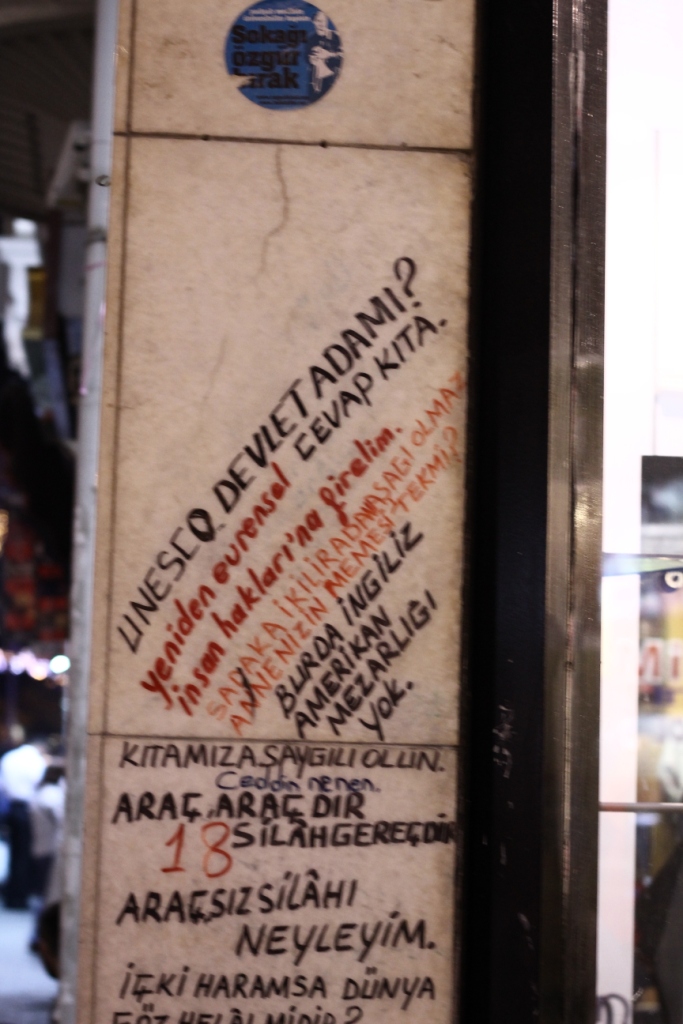 Sokağı
özgür
bırak
UNESCO DEVLET ADAMI?
CEVAP KITA.
yeniden evrensel
insan hakları'na girelim.
SADAKA İKİLİRADANAŞAGI OLMAZ
ANNENİZİN MEMESİ TEKMİ?
BURDA İNGİLİZ
AMERİKAN
MEZARLIĞI
YOK.
KITAMIZA SAYGILI OLUN.
Ceddin nenen.
ARAÇ, ARAÇDIR
18 SİLÂHGEREÇDİR
ARAÇSIZ SİLÂHI
NEYLEYİM.
İÇKİ HARAMSA DÜNYA
GÖZ HELÂLMİDİR?